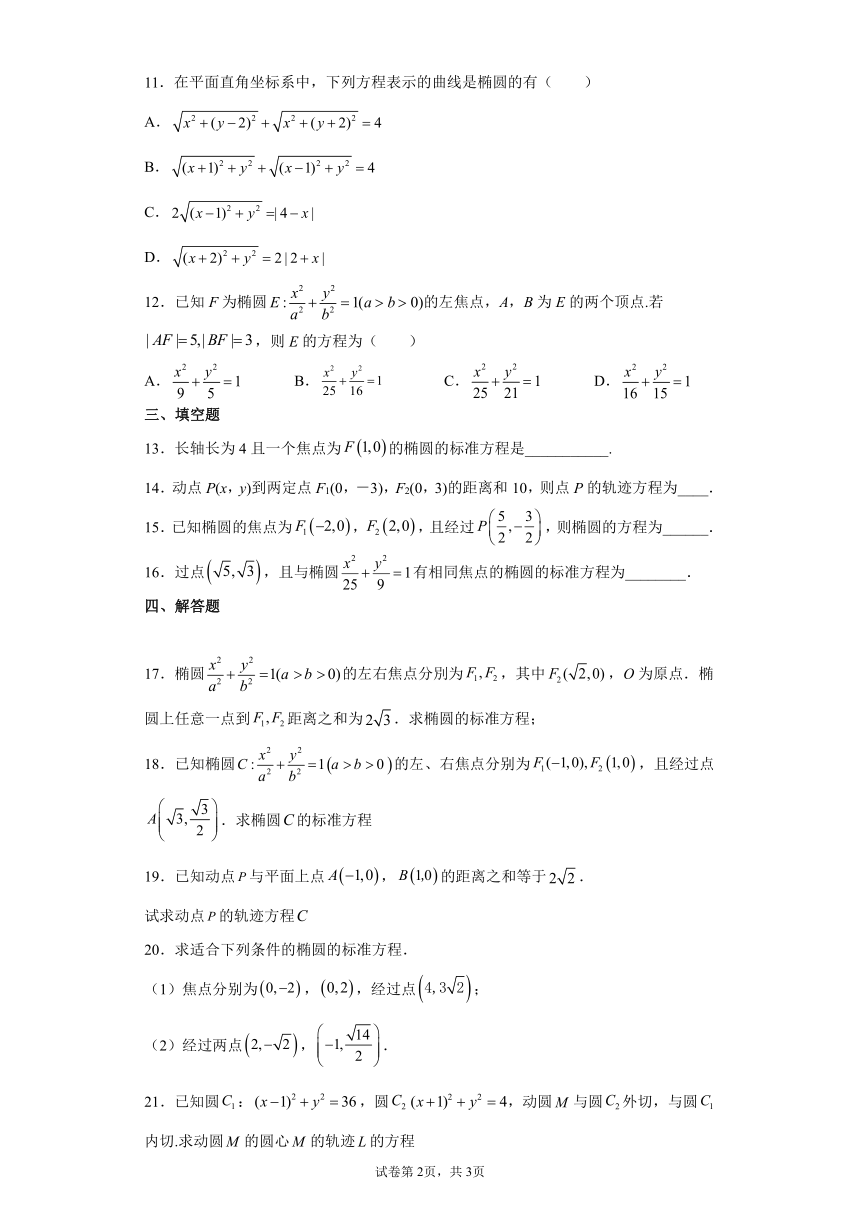 11．在平面直角坐标系中，下列方程表示的曲线是椭圆的有（　　）
A．√(x²+(y−2)²)+√(x²+(y+2)²)=4
B．√((x+1)²+y²)+√((x−1)²+y²)=4
C．2√((x−1)²+y²)=|4−x|
D．√((x+2)²+y²)=2|2+x|
12．已知 F 为椭圆 E:x²/a²+y²/b²=1(a>b>0)的左焦点，A，B 为 E 的两个顶点.若
|AF|=5,|BF|=3，则 E 的方程为（　　）
A．x²/9+y²/5=1 B．x²/25+y²/16=1 C．x²/25+y²/21=1 D．x²/16+y²/15=1
三、填空题
13．长轴长为 4 且一个焦点为 F(1,0) 的椭圆的标准方程是___________.
14．动点 P(x，y)到两定点 F₁(0，－3)，F₂(0，3)的距离和 10，则点 P 的轨迹方程为____．
15．已知椭圆的焦点为 F₁(−2,0)，F₂(2,0)，且经过 P(5/2,−3/2)，则椭圆的方程为______．
16．过点(√5,√3)，且与椭圆 x²/25+y²/9=1 有相同焦点的椭圆的标准方程为________．
四、解答题
17．椭圆 x²/a²+y²/b²=1(a>b>0)的左右焦点分别为 F₁,F₂，其中 F₂(√2,0)，O 为原点．椭
圆上任意一点到 F₁,F₂ 距离之和为 2√3．求椭圆的标准方程；
18．已知椭圆 C:x²/a²+y²/b²=1(a>b>0)的左、右焦点分别为 F₁(−1,0),F₂(1,0)，且经过点
A(√3,√3/2)．求椭圆 C 的标准方程
19．已知动点 P 与平面上点 A(−1,0)，B(1,0) 的距离之和等于 2√2．
试求动点 P 的轨迹方程 C
20．求适合下列条件的椭圆的标准方程．
（1）焦点分别为(0,−2)，(0,2)，经过点(4,3√2)；
（2）经过两点(2,−√2)，(−1,√14/2)．
21．已知圆 C₁：(x−1)²+y²=36，圆 C₂ (x+1)²+y²=4，动圆 M 与圆 C₂ 外切，与圆 C₁
内切.求动圆 M 的圆心 M 的轨迹 L 的方程
试卷第 2页，共 3页